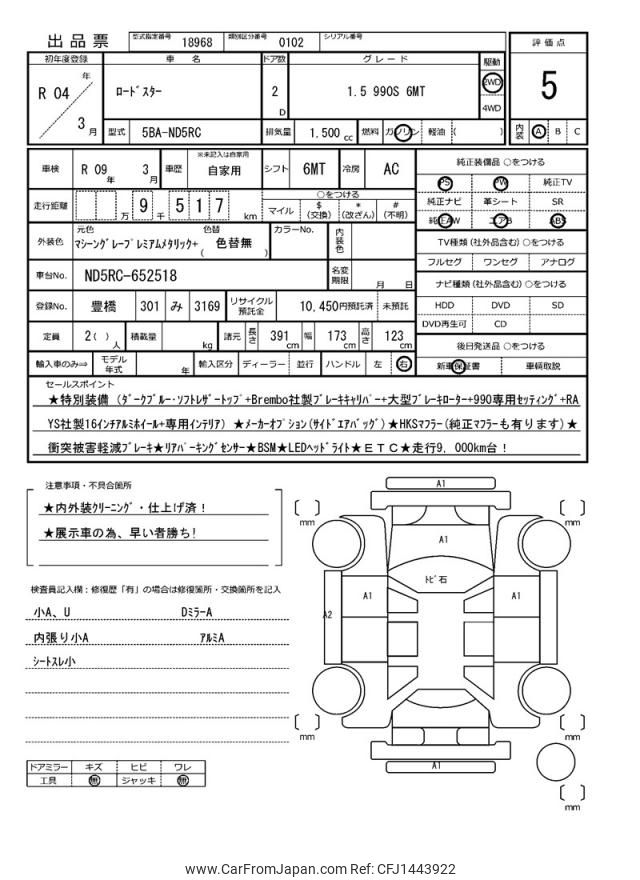 出品票 型式指定番号 18968 類別区分番号 0102 シリアル番号
評価点
5
内装 A B C
初年度登録 車名 ドア数 グレード 駆動
R 04 年 3 月
ﾛｰﾄﾞｽﾀｰ 2 D 1.5 990S 6MT 2WD 4WD
型式 5BA-ND5RC 排気量 1.500 cc 燃料 ガソリン 軽油 ( )
車検 R 09 年 3 月 車歴 ※未記入は自家用 自家用 シフト 6MT 冷房 AC
走行距離 万 9 千 5 1 7 km
○をつける
マイル $ (交換) * (改ざん) # (不明)
外装色 元色 色替
ﾏｼｰﾝｸﾞﾚｰﾌﾟﾚﾐｱﾑﾒﾀﾘｯｸ+ ( 色替無 )
カラーNo. 内装色
車台No. ND5RC-652518 名変期限 月 日
登録No. 豊橋 301 み 3169 リサイクル預託金 10,450円預託済 未預託
定員 2( ) 人 積載量 kg 諸元 長さ 391 cm 幅 173 cm 高さ 123 cm
輸入車のみ⇒ モデル年式 年 輸入区分 ディーラー 並行 ハンドル 左 右
純正装備品 ○をつける
PS PW 純正TV
純正ナビ 革シート SR
純正AW エアB ABS
TV種類(社外品含む) ○をつける
フルセグ ワンセグ アナログ
ナビ種類(社外品含む) ○をつける
HDD DVD SD
DVD再生可 CD
後日発送品 ○をつける
新車保証書 車輌取説
セールスポイント
★特別装備 (ﾀﾞｰｸﾌﾞﾙｰ･ｿﾌﾄﾚｻﾞｰﾄｯﾌﾟ+Brembo社製ﾌﾞﾚｰｷｷｬﾘﾊﾟｰ+大型ﾌﾞﾚｰｷﾛｰﾀｰ+990専用ｾｯﾃｨﾝｸﾞ+RA
YS社製16ｲﾝﾁｱﾙﾐﾎｲｰﾙ+専用ｲﾝﾃﾘｱ) ★ﾒｰｶｰｵﾌﾟｼｮﾝ(ｻｲﾄﾞｴｱﾊﾞｯｸﾞ)★HKSﾏﾌﾗｰ(純正ﾏﾌﾗｰも有ります)★
衝突被害軽減ﾌﾞﾚｰｷ★ﾘｱﾊﾟｰｷﾝｸﾞｾﾝｻｰ★BSM★LEDﾍｯﾄﾞﾗｲﾄ★ＥＴＣ★走行9,000km台！
注意事項・不具合箇所
★内外装ｸﾘｰﾆﾝｸﾞ・仕上げ済！
★展示車の為、早い者勝ち!
検査員記入欄：修復歴「有」の場合は修復箇所・交換箇所を記入
小A、U DﾐﾗｰA
内張り小A ｱﾙﾐA
ｼｰﾄｽﾚ小
ドアミラー キズ ヒビ ワレ
工具 無 ジャッキ 無
A1
mm mm
A1
ﾄﾋﾞ石
A1 A1
A2
mm mm
A1
mm
www.CarFromJapan.com Ref: CFJ1443922